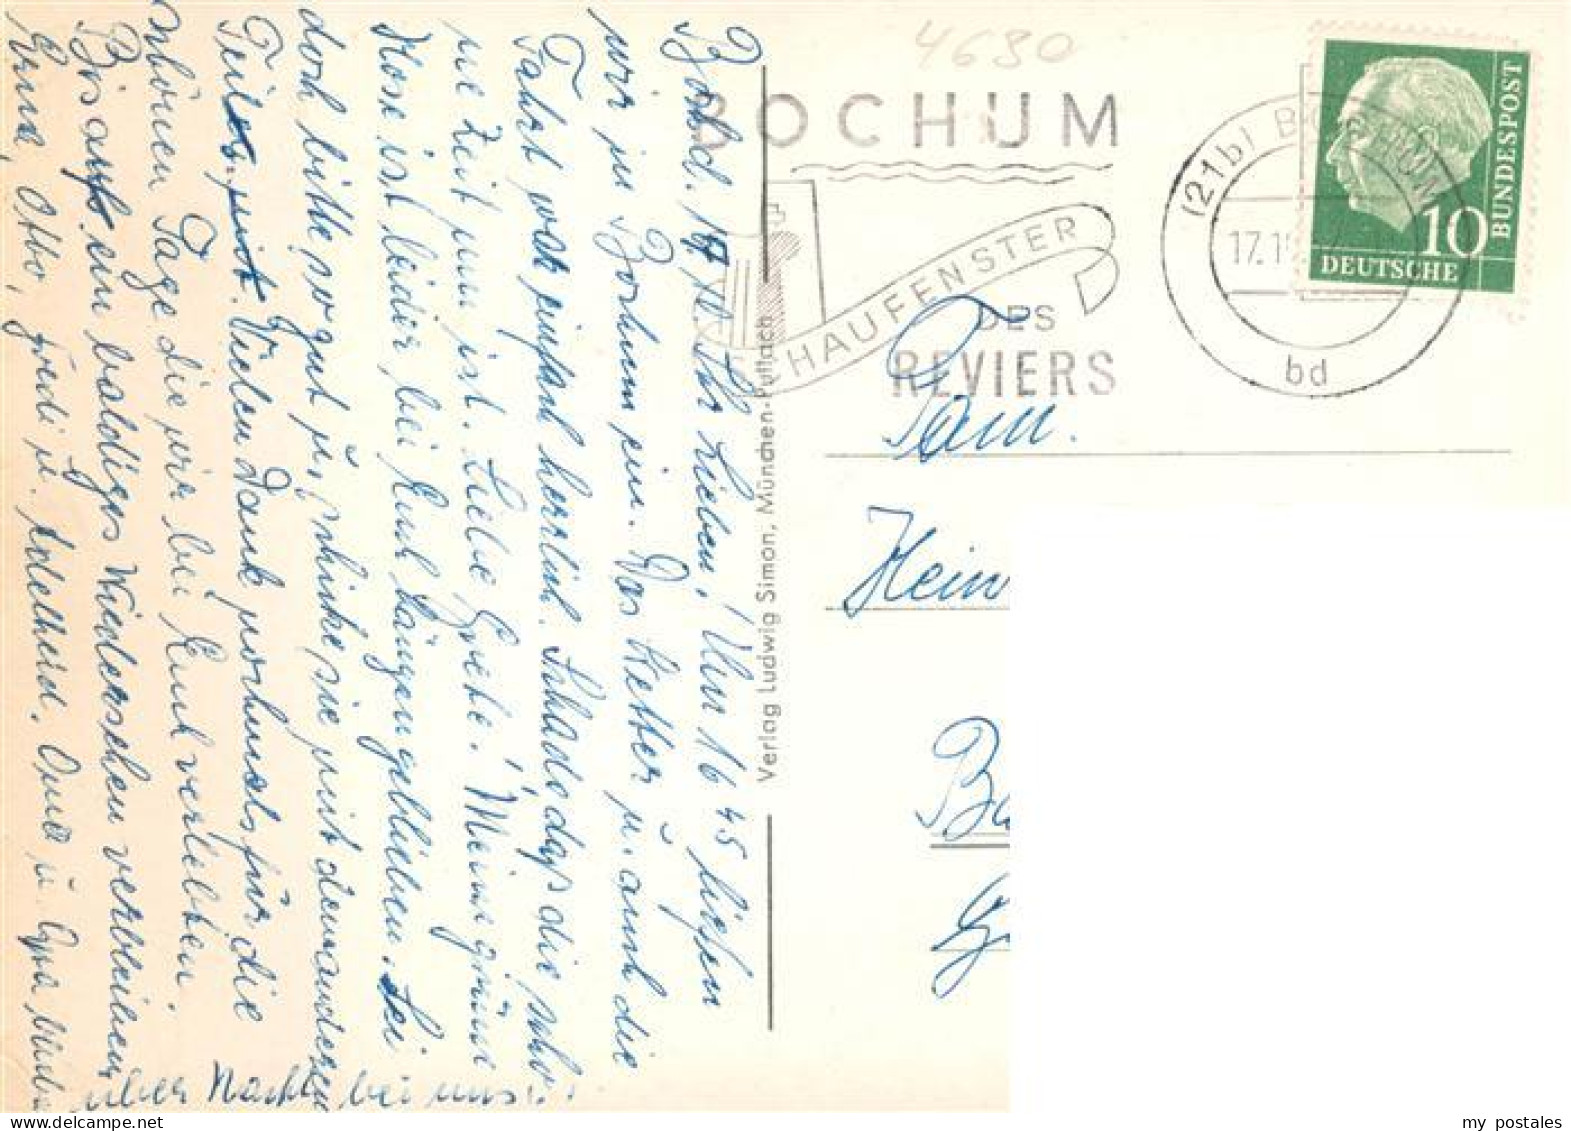 Bochd. 17.10. Ihr Lieben! Um 16 45 liefen
wir in Bochum ein. Das Wetter u. auch die
Fahrt war einfach herrlich. Schade daß die schö
ne Zeit um ist. Liebe Grete! Meine grüne
Hose ist leider bei Euch hängen geblieben. Sei
doch bitte so gut u. schicke sie mit den anderen
Teilen mit. Vielen Dank nochmals für die
schönen Tage die wir bei Euch verlebten.
Bis auf ein baldiges Wiedersehen verbleiben
Erna, Otto, Fredi u. Adelheid. Oma u. Opa
über Nacht bei uns.
Verlag Ludwig Simon, München-Pullach
4630
BOCHUM
SCHAUFENSTER
DES
REVIERS
(21b) BOCHUM
17.
bd
10
DEUTSCHE
BUNDESPOST
Fam.
Hein